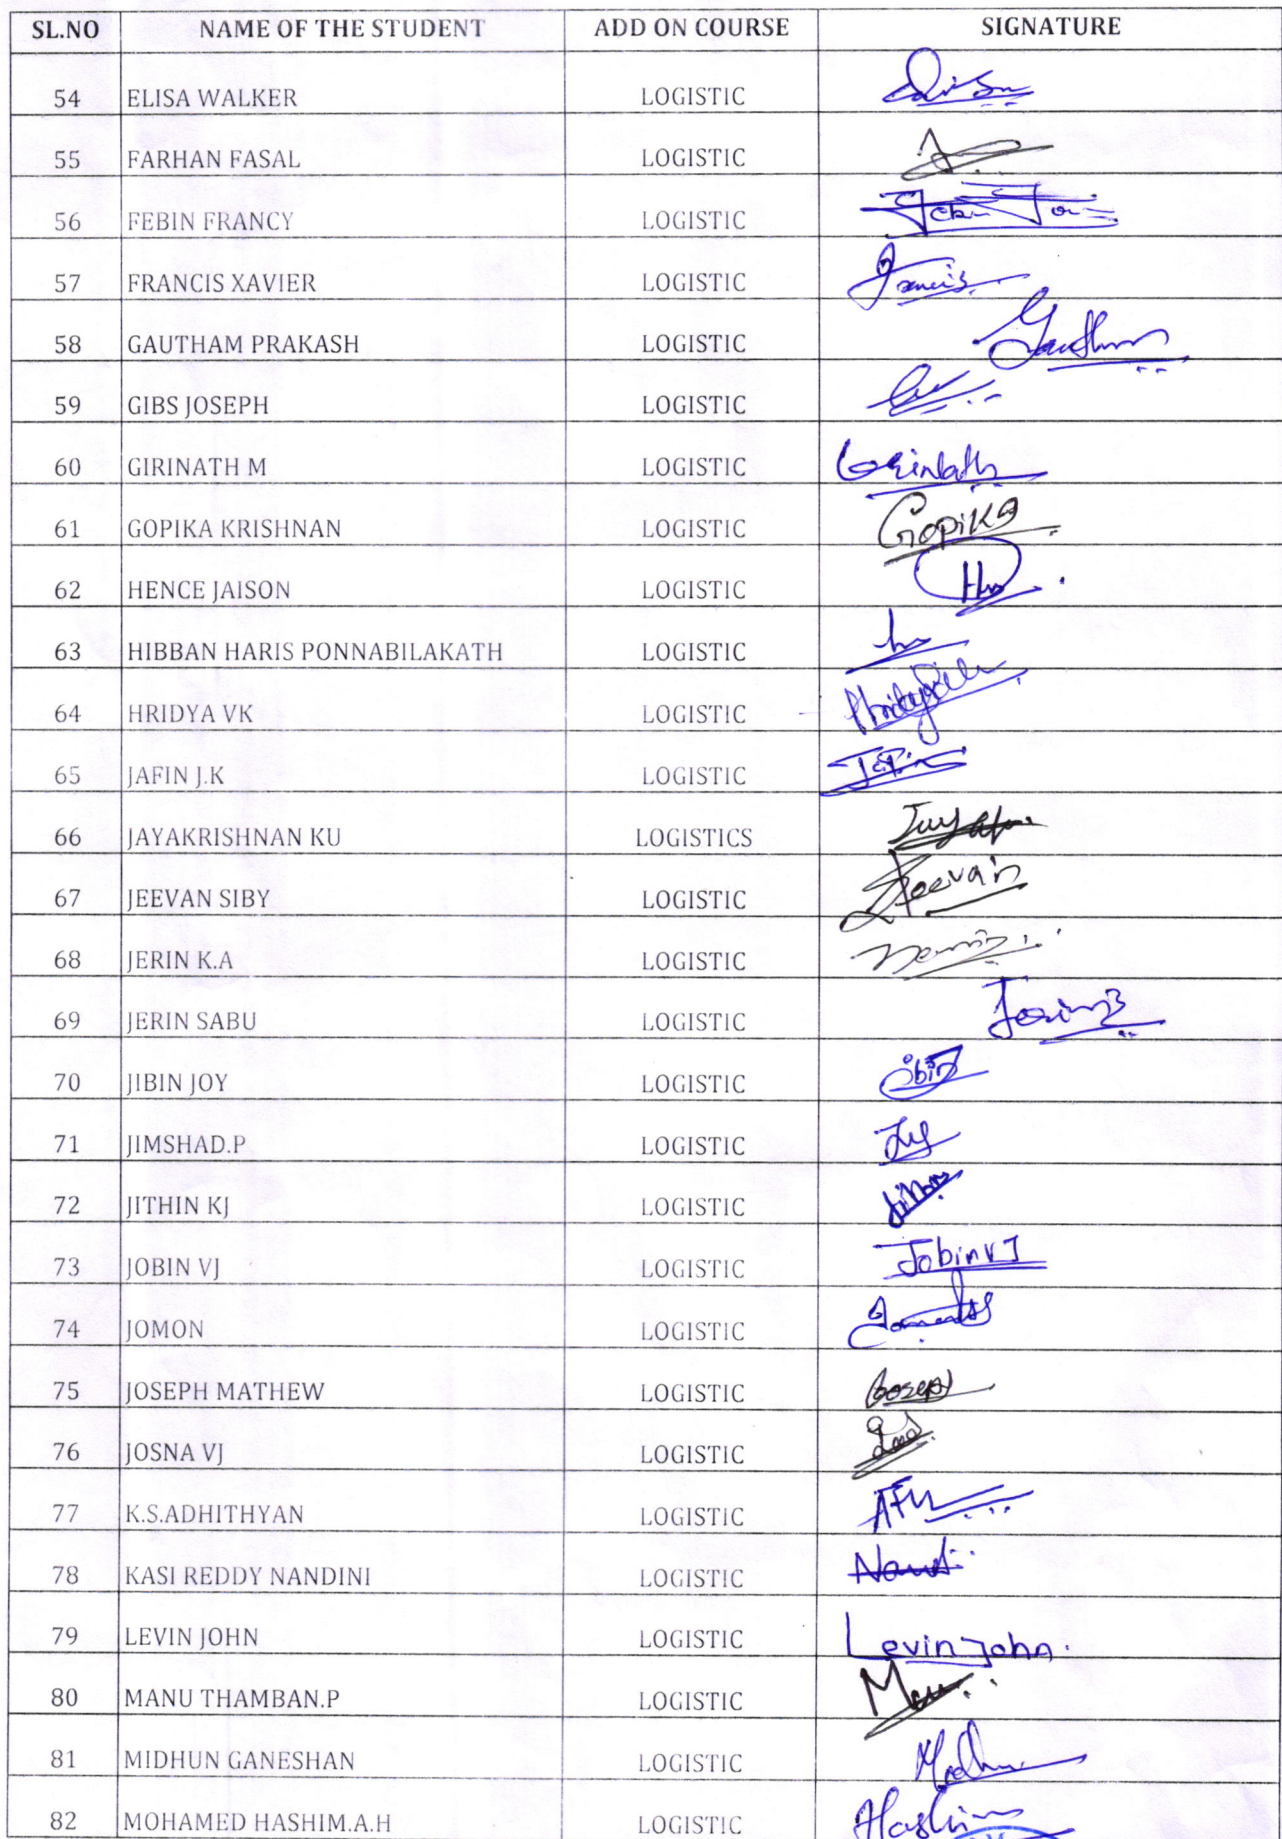 SL.NO NAME OF THE STUDENT ADD ON COURSE SIGNATURE
54 ELISA WALKER LOGISTIC
55 FARHAN FASAL LOGISTIC
56 FEBIN FRANCY LOGISTIC
57 FRANCIS XAVIER LOGISTIC Francis
58 GAUTHAM PRAKASH LOGISTIC Gautham
59 GIBS JOSEPH LOGISTIC
60 GIRINATH M LOGISTIC Girinath
61 GOPIKA KRISHNAN LOGISTIC Gopika
62 HENCE JAISON LOGISTIC
63 HIBBAN HARIS PONNABILAKATH LOGISTIC
64 HRIDYA VK LOGISTIC
65 JAFIN J.K LOGISTIC Jafin
66 JAYAKRISHNAN KU LOGISTICS
67 JEEVAN SIBY LOGISTIC Jeevan
68 JERIN K.A LOGISTIC
69 JERIN SABU LOGISTIC
70 JIBIN JOY LOGISTIC
71 JIMSHAD.P LOGISTIC
72 JITHIN KJ LOGISTIC
73 JOBIN VJ LOGISTIC Jobin VJ
74 JOMON LOGISTIC
75 JOSEPH MATHEW LOGISTIC Joseph
76 JOSNA VJ LOGISTIC
77 K.S.ADHITHYAN LOGISTIC
78 KASI REDDY NANDINI LOGISTIC
79 LEVIN JOHN LOGISTIC Levin John.
80 MANU THAMBAN.P LOGISTIC
81 MIDHUN GANESHAN LOGISTIC
82 MOHAMED HASHIM.A.H LOGISTIC Hashim